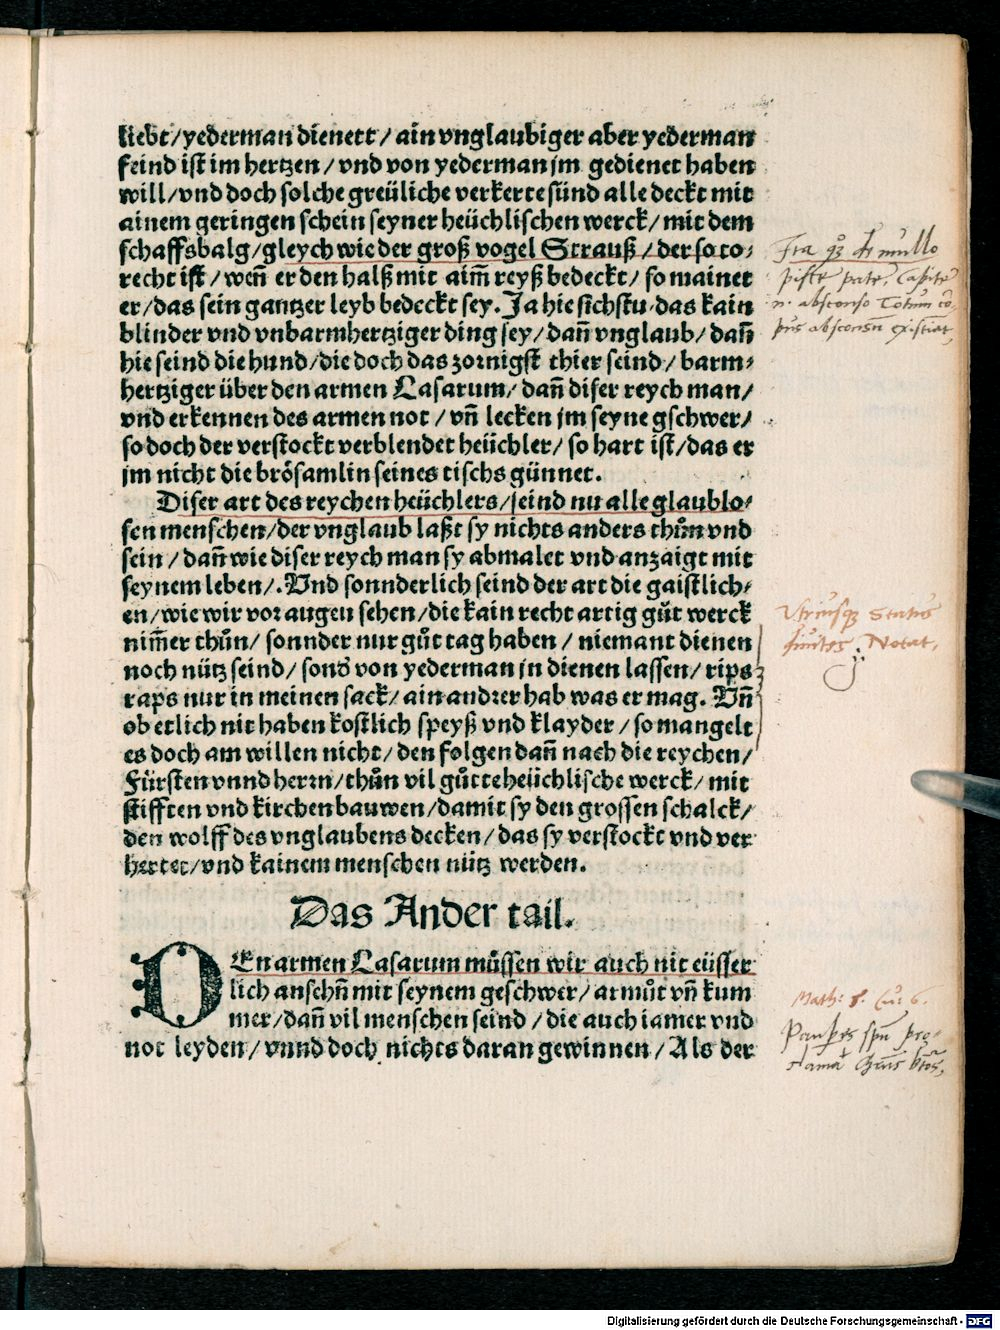 liebt/yederman dienett/ain vnglaubiger aber yederman
feind ist im hertzen/vnd von yederman jm gedienet haben
will/vnd doch solche greüliche verkerte sünd alle deckt mit
ainem geringen schein seyner heüchlischen werck/mit dem
schaffsbalg/gleych wie der groß vogel Strauß/der so to-
recht ist/weñ er den halß mit aim̃ reyß bedeckt/so mainet
er/das sein gantzer leyb bedeckt sey. Ja hie sichstu das kain
blinder vnd vnbarmhertziger ding sey/dañ vnglaub/dañ
hie seind die hund/die doch das zornigst thier seind/barm-
hertziger über den armen Lasarum/dañ diser reych man/
vnd erkennen des armen not/vñ lecken jm seyne gschwer/
so doch der verstockt verblendet heüchler/so hart ist/das er
jm nicht die brösamlin seines tischs günnet.
Diser art des reychen heüchlers/seind nu alle glaublo-
sen menschen/der vnglaub laßt sy nichts anders thůn vnd
sein/dañ wie diser reych man sy abmalet vnd anzaigt mit
seynem leben/. Vnd sonnderlich seind der art die gaistlich-
en/wie wir vor augen sehen/die kain recht artig gůt werck
nim̃er thůn/sonnder nur gůt tag haben/niemant dienen
noch nütz seind/sond von yederman jn dienen lassen/rips
raps nur in meinen sack/ain andrer hab was er mag. Vñ
ob etlich nit haben kostlich speyß vnd klayder/so mangelt
es doch am willen nicht/den folgen dañ nach die reychen/
Fürsten vnnd herrn/thůn vil gůtte heüchlische werck/mit
stifften vnd kirchen bauwen/damit sy den grossen schalck/
den wolff des vnglaubens decken/das sy verstockt vnd ver
hertet/vnd kainem menschen nütz werden.
Das Ander tail.
DEn armen Lasarum müssen wir auch nit eüsser
lich anschñ mit seynem geschwer/armůt vñ kum
mer/dañ vil menschen seind/die auch iamer vnd
not leyden/vnnd doch nichts daran gewinnen/Als der
pisse pate, capite
n. absconso Totum co-
pus absconsũ existiat,
Vtriusq; Status
Notat.
Math: 5. Luc 6.
Paupes spũ pro-
clamat
Digitalisierung gefördert durch die Deutsche Forschungsgemeinschaft - DFG